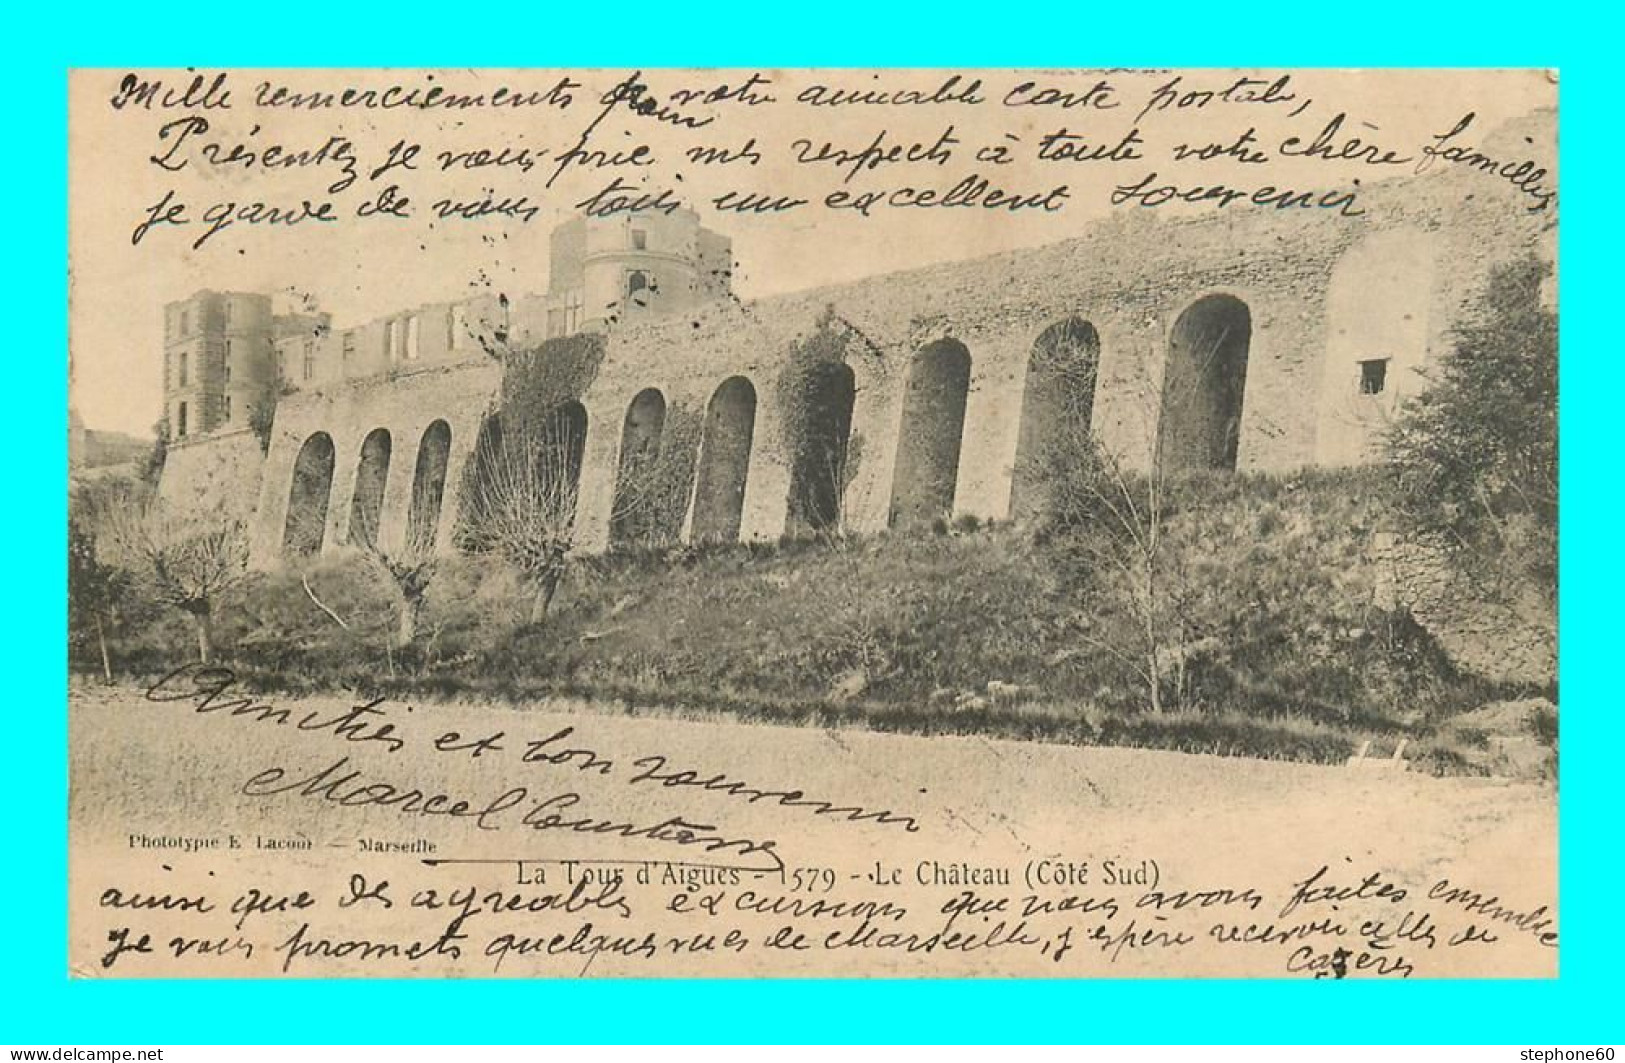 Mille remerciements pour votre aimable carte postale,
Présentez je vous prie mes respects à toute votre chère famille,
Je garde de vous tous un excellent souvenir
Amitiés et bon souvenir
Marcel
Phototypie E. Lacour — Marseille
La Tour d'Aigues - 1579 - Le Château (Côté Sud)
ainsi que des agréables excursions que nous avons faites ensemble
Je vous promets quelques vues de Marseille, j'espère recevoir celles de
Cazères
Delcampe.net
stephone60